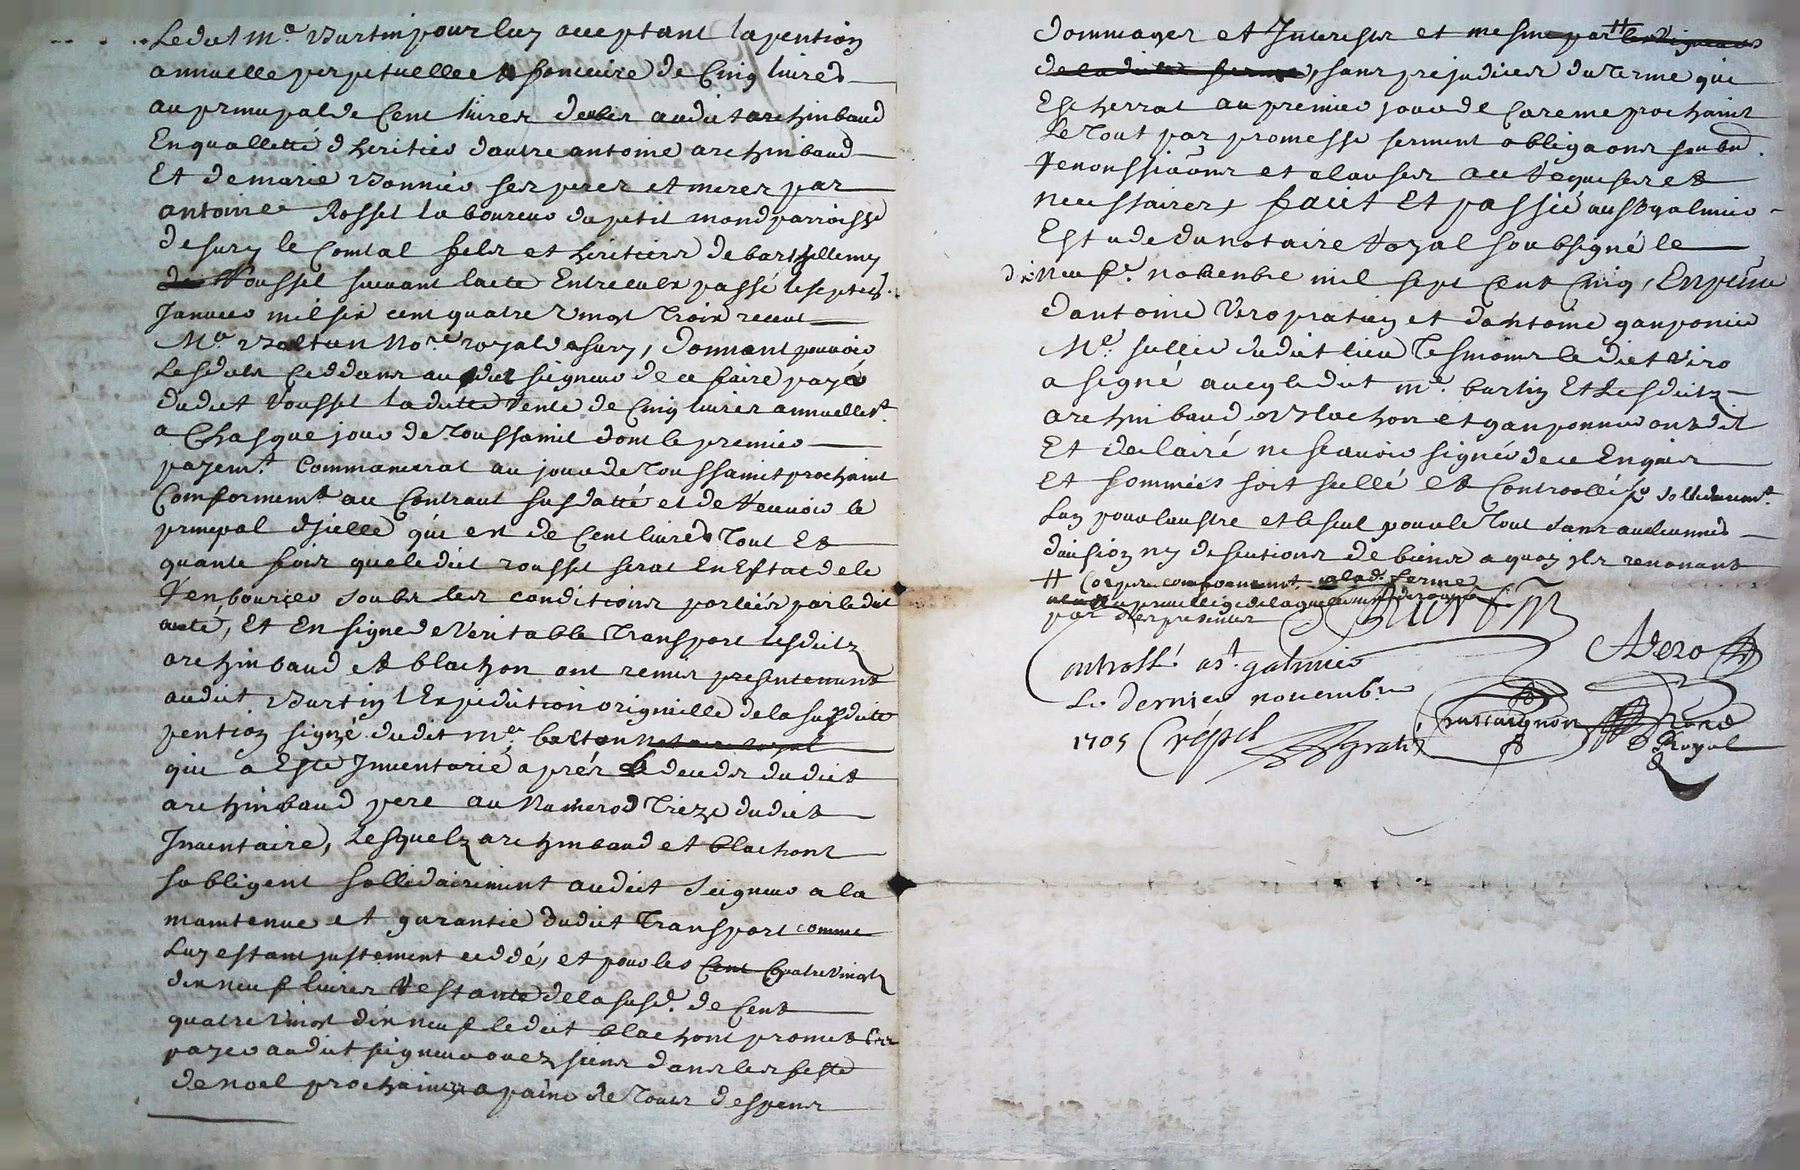 Ledit Me Burtin pour luy acceptant la pention
annuelle perpetuelle et fonciere de Cinq livres
au principal de Cent livres deubz audit archinbaud
En quallitté d heritier d autre antoine archinbaud
Et de marie Bonnier ses perez et merez par
antoine Rossel laboureur du petit mond parroisse
de Sury le Comtal filz et heritier de barthellemy
Roussel suivant lacte Entreeulx passé le septie
Janvier mil six cent quatre vingt Trois receu
Me Baltan Nore royal de Sury, donnant pouvoir
Lesdits Ceddans audit seigneur de ce faire payer
dudit Roussel laditte Rente de Cinq livres annuellemt
a Chasque jour de Toussainct dont le premier
payemt Commancerat au jour de Toussainct prochaint
Conformemt au Contraut susdatté et de Recevoir le
principal d Jcelle qui est de Cent livres Tout Et
quante fois que ledit roussel serat En Estat de le
Rembourcer soubz les conditions portéés par ledit
acte, Et En signe de Veritable Transport lesditz
archinbaud et blachon ont remis presentement
audit Burtin l Expedition originelle de la susditte
pention signée dudit Me baltan notaire royal
qui a Este Jnventorié aprés le deceds dudict
archinbaud pere au Numero Treize dudict
Jnventaire, Lesquelz archinbaud et blachont
sobligent sollidairement audict Seigneur a la
maintenue et garantie dudict Transport comme
Luy estant justement ceddé, et pour les Cent Quatre vingtz
dix neuf livres Restante de la susd. de Cent
quatre vingt dix neuf ledit blachont promet les
payer audit seigneur ou ez siens dans les feste
de noel prochaines a paine de Tous despens
Dommages et Jnterestz et mesme par # les Rigueurs
de laditte ferme, sans prejudice du Terme qui
Escherrat au premier jour de Careme prochaint
Le Tout par promesse serment obligaons soubmi
Renonssiaons et clauses ace Requises et
necessaires, faict Et passé a St galmier
Estude du notaire Royal soubsigné le
dixneufe novembre mil sept Cent Cinq, En presence
d antoine Viro praticien et d antoine ganponier
Me sellier dudict lieu Tesmoins ledict Viro
a signé avecq ledit me burtin Et Lesditz
archinbaud, Blachon et ganponnier ont dit
Et declairé ne scavoir signer de ce Enquis
Et sommés soit sellé et Controollé sollidairemt
Luy pour laustre et le seul pour le Tout sans aulcunes
division ny discutions de biens a quoy ilz renonant
# Corps comformement a lad. ferme
par Expresses
Burtin
AViro
Controllé a St galmier
Le dernier novembre
1705
Crépet
gratis
Royal